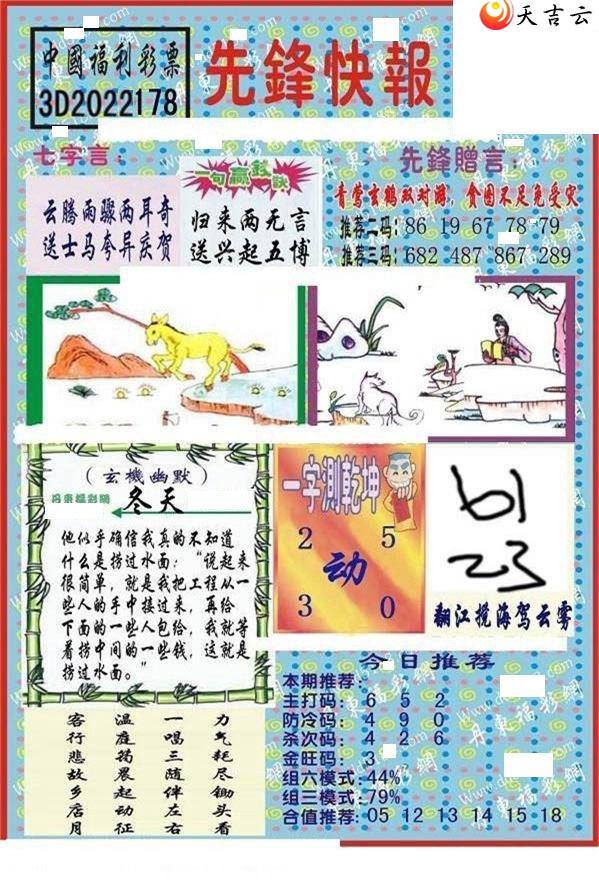 天吉云
中國福利彩票
3D2022178
先鋒快報
七字言：
云腾雨骤两耳奇
送士马夸异庆贺
一句赢钱诀
归来两无言
送兴起五博
先鋒贈言：
青莺玄鹤双对游，食困不足免受灾
推荐二码：86 19 67 78 79
推荐三码：682 487 867 289
（玄機幽默）
丹東福彩網
冬天
他似乎确信我真的不知道
什么是捞过水面：“说起来
很简单，就是我把工程从一
些人的手中接过来，再给
下面的一些人包给，我就等
着捞中间的一些钱，这就是
捞过水面。”
一字測乾坤
2 5
动
3 0
61
23
翻江搅海驾云雾
今日推荐
本期推荐：
主打码：6 5 2
防冷码：4 9 0
杀次码：4 2 6
金旺码：3
组六模式：44%
组三模式：79%
合值推荐：05 12 13 14 15 18
力气耗尽锄头看
一唱三随伴左右
温庭筠晨起动征
客行悲故乡店月